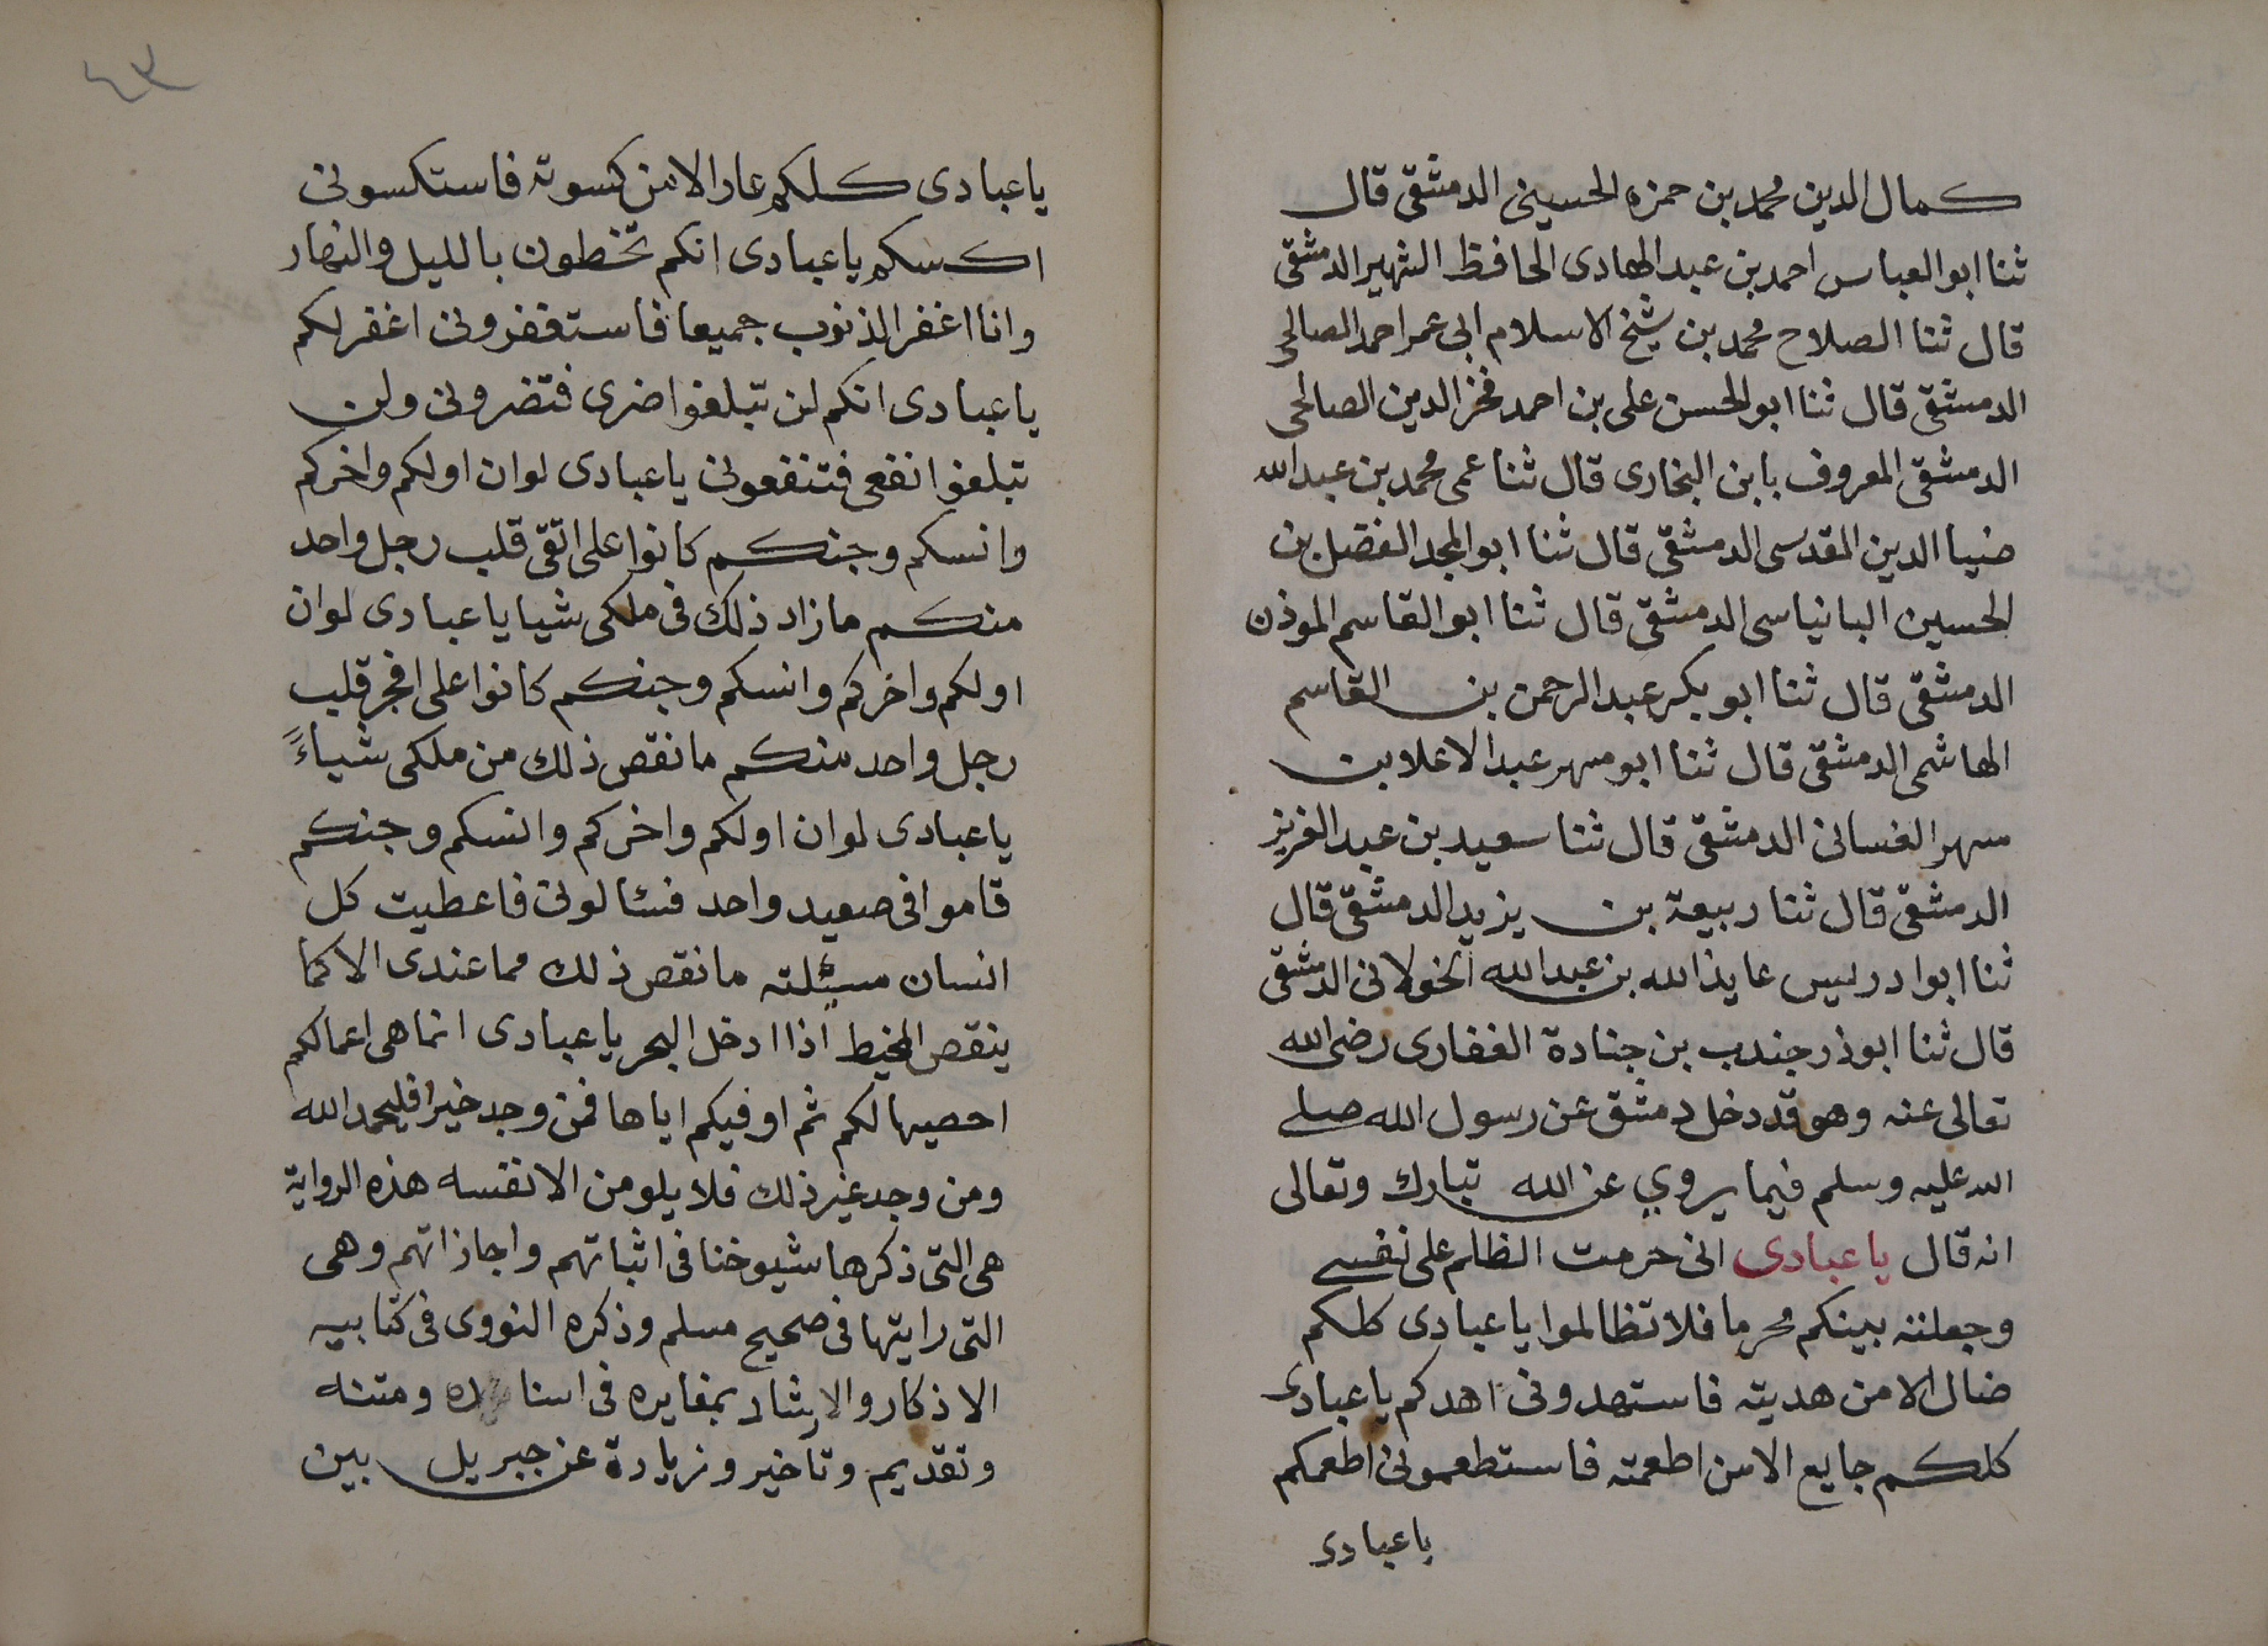 كمال الدين محمد بن حمزه الحسيني الدمشقى قال
ثنا ابو العباس احمد بن عبد الهادى الحافظ الشهير الدمشقى
قال ثنا الصلاح محمد بن شيخ الاسلام ابى عمر احمد الصالحى
الدمشقى قال ثنا ابو الحسن على بن احمد فخر الدين الصالحى
الدمشقى المعروف بابن البخارى قال ثنا عمى محمد بن عبد الله
ضيا الدين المقدسى الدمشقى قال ثنا ابو المجد الفضل بن
الحسين البانياسى الدمشقى قال ثنا ابو القاسم الموذن
الدمشقى قال ثنا ابو بكر عبد الرحمن بن القاسم
الهاشمى الدمشقى قال ثنا ابو مسهر عبد الاعلا بن
مسهر الغسانى الدمشقى قال ثنا سعيد بن عبد العزيز
الدمشقى قال ثنا ربيعة بن يزيد الدمشقى قال
ثنا ابو ادريس عايذ الله بن عبد الله الخولانى الدمشقى
قال ثنا ابو ذر جندب بن جنادة الغفارى رضى الله
تعالى عنه وهو قد دخل دمشق عن رسول الله صلى
الله عليه وسلم فيما يروي عن الله تبارك وتعالى
انه قال يا عبادى انى حرمت الظلم على نفسى
وجعلته بينكم محرما فلا تظالموا يا عبادى كلكم
ضال الا من هديته فاستهدونى اهدكم يا عبادى
كلكم جايع الا من اطعمته فاستطعمونى اطعمكم
يا عبادى
٤٣
يا عبادى كلكم عار الا من كسوته فاستكسونى
اكسكم يا عبادى انكم تخطون بالليل والنهار
وانا اغفر الذنوب جميعا فاستغفرونى اغفر لكم
يا عبادى انكم لن تبلغوا ضرى فتضرونى ولن
تبلغوا نفعى فتنفعونى يا عبادى لو ان اولكم واخركم
وانسكم وجنكم كانوا على اتقى قلب رجل واحد
منكم ما زاد ذلك فى ملكى شيا يا عبادى لو ان
اولكم واخركم وانسكم وجنكم كانوا على افجر قلب
رجل واحد منكم ما نقص ذلك من ملكى شياءً
يا عبادى لو ان اولكم واخركم وانسكم وجنكم
قاموا فى صعيد واحد فسئالونى فاعطيت كل
انسان مسئلته ما نقص ذلك مما عندى الا كما
ينقص المخيط اذا ادخل البحر يا عبادى انما هى اعمالكم
احصيها لكم ثم اوفيكم اياها فمن وجد خيرا فليحمد الله
ومن وجد غير ذلك فلا يلومن الا نفسه هذه الرواية
هى التى ذكرها شيوخنا فى اثباتهم واجازاتهم وهى
التى رايتها فى صحيح مسلم وذكره النووى فى كتابيه
الاذكار والارشاد بمغايره فى اسناده ومتنه
وتقديم وتأخير وزيادة عن جبريل بين